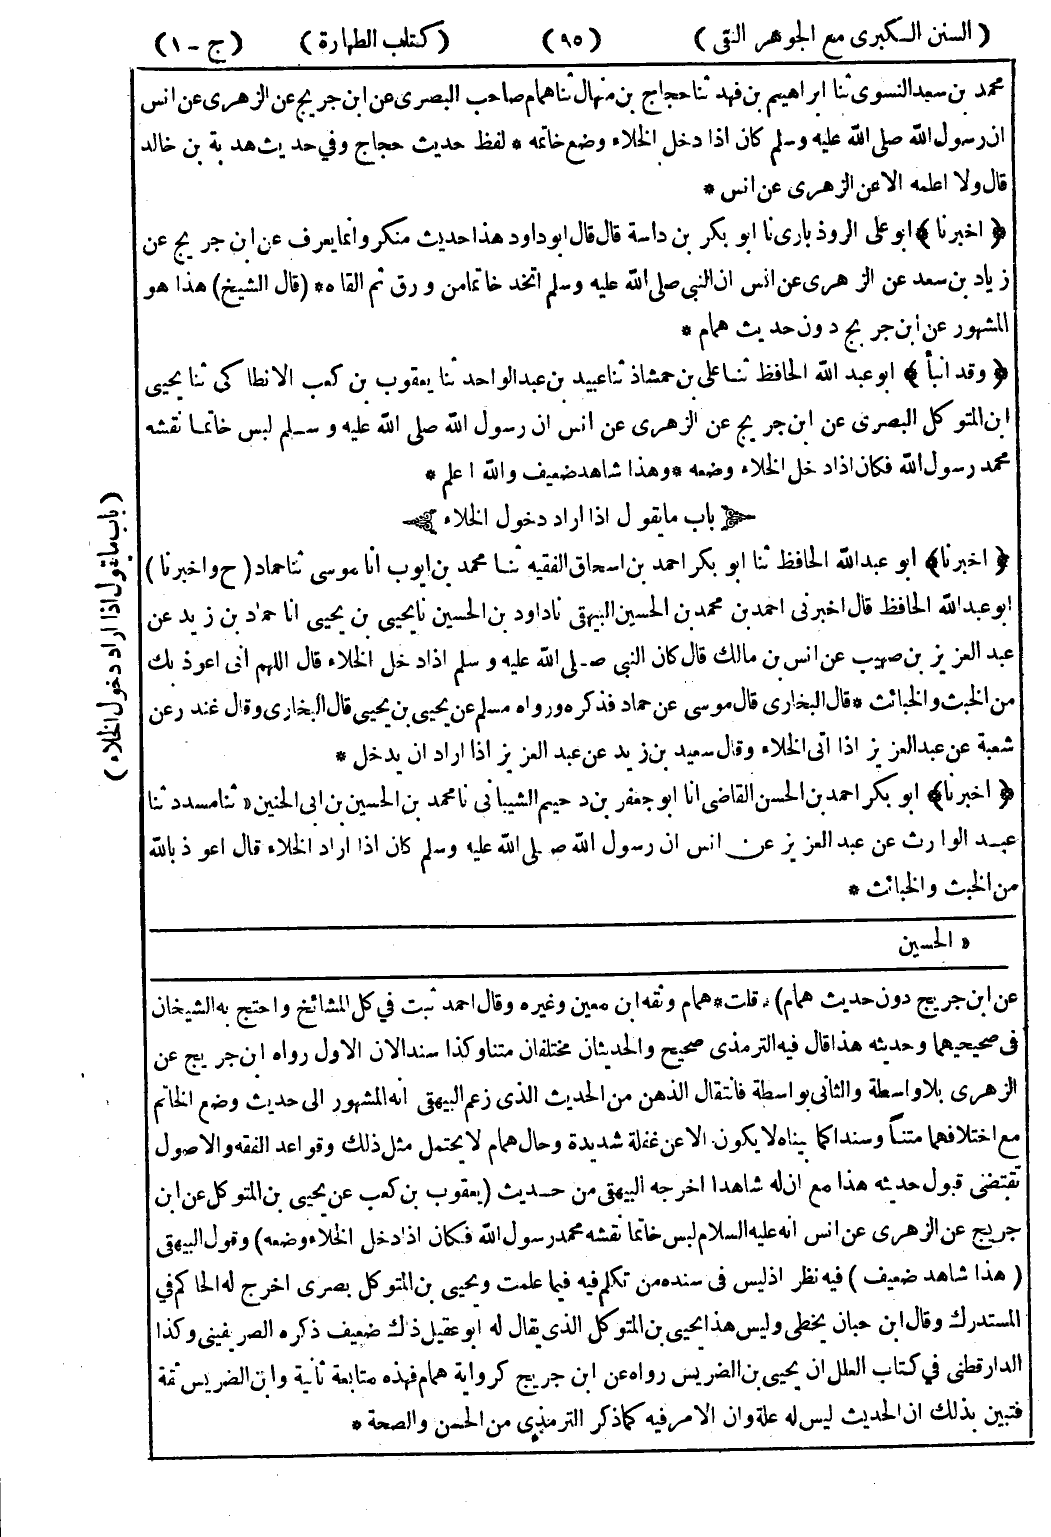 ( السنن الكبرى مع الجوهر النقى ) ( ٩٥ ) ( كتاب الطهارة ) ( ج - ١ )
محمد بن سعيد النسوى ثنا ابراهيم بن فهد ثنا حجاج بن منهال ثنا همام صاحب البصرى عن ابن جريج عن الزهرى عن انس
ان رسول الله صلى الله عليه وسلم كان اذا دخل الخلاء وضع خاتمه * لفظ حديث حجاج وفي حديث هدبة بن خالد
قال ولا اعلمه الا عن الزهرى عن انس *
﴿ اخبرنا ﴾ ابو على الروذبارى نا ابو بكر بن داسة قال قال ابو داود هذا حديث منكر وانما يعرف عن ابن جريج عن
زياد بن سعد عن الزهرى عن انس ان النبى صلى الله عليه وسلم اتخذ خاتما من ورق ثم القاه * ( قال الشيخ ) هذا هو
المشهور عن ابن جريج دون حديث همام *
﴿ وقد انبأ ﴾ ابو عبد الله الحافظ ثنا على بن حمشاذ ثنا عبيد بن عبد الواحد ثنا يعقوب بن كعب الانطاكى ثنا يحيى
ابن المتوكل البصرى عن ابن جريج عن الزهرى عن انس ان رسول الله صلى الله عليه وسلم لبس خاتما نقشه
محمد رسول الله فكان اذا دخل الخلاء وضعه * وهذا شاهد ضعيف والله اعلم *
باب ما يقول اذا اراد دخول الخلاء
( باب ما يقول اذا اراد دخول الخلاء )
﴿ اخبرنا ﴾ ابو عبد الله الحافظ ثنا ابو بكر احمد بن اسحاق الفقيه ثنا محمد بن ايوب انا موسى ثنا حماد ( ح واخبرنا )
ابو عبد الله الحافظ قال اخبرنى احمد بن محمد بن الحسين البيهقى نا داود بن الحسين نا يحيى بن يحيى انا حماد بن زيد عن
عبد العزيز بن صهيب عن انس بن مالك قال كان النبى صلى الله عليه وسلم اذا دخل الخلاء قال اللهم انى اعوذ بك
من الخبث والخبائث * قال البخارى قال موسى عن حماد فذكره ورواه مسلم عن يحيى بن يحيى قال البخارى وقال غندر عن
شعبة عن عبد العزيز اذا اتى الخلاء وقال سعيد بن زيد عن عبد العزيز اذا اراد ان يدخل *
﴿ اخبرنا ﴾ ابو بكر احمد بن الحسن القاضى انا ابو جعفر بن دحيم الشيبانى نا محمد بن الحسين بن ابى الحنين « ثنا مسدد ثنا
عبد الوارث عن عبد العزيز عن انس ان رسول الله صلى الله عليه وسلم كان اذا اراد الخلاء قال اعوذ بالله
من الخبث والخبائث *
« الحسين
عن ابن جريج دون حديث همام ) * قلت * همام وثقه ابن معين وغيره وقال احمد ثبت في كل المشائخ واحتج به الشيخان
فى صحيحيهما وحديثه هذا قال فيه الترمذى صحيح والحديثان مختلفان متنا وكذا سندا لان الاول رواه ابن جريج عن
الزهرى بلا واسطة والثانى بواسطة فانتقال الذهن من الحديث الذى زعم البيهقى انه المشهور الى حديث وضع الخاتم
مع اختلافهما متناً وسندا كما بيناه لا يكون الا عن غفلة شديدة وحال همام لا يحتمل مثل ذلك وقواعد الفقه والاصول
تقتضى قبول حديثه هذا مع ان له شاهدا اخرجه البيهقى من حديث ( يعقوب بن كعب عن يحيى بن المتوكل عن ابن
جريج عن الزهرى عن انس انه عليه السلام لبس خاتما نقشه محمد رسول الله فكان اذا دخل الخلاء وضعه ) وقول البيهقى
( هذا شاهد ضعيف ) فيه نظر اذ ليس فى سنده من تكلم فيه فيما علمت ويحيى بن المتوكل بصرى اخرج له الحاكم في
المستدرك وقال ابن حبان يخطى وليس هذا يحيى بن المتوكل الذى يقال له ابو عقيل ذلك ضعيف ذكره الصريفينى وكذا
الدارقطنى في كتاب العلل ان يحيى بن الضريس رواه عن ابن جريج كرواية همام فهذه متابعة ثانية وابن الضريس ثقة
فتبين بذلك ان الحديث ليس له علة وان الامر فيه كما ذكر الترمذى من الحسن والصحة *